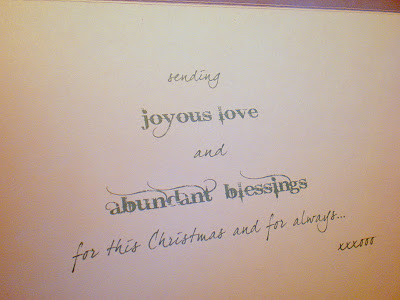 sending
joyous love
and
abundant blessings
for this Christmas and for always...
xxxooo